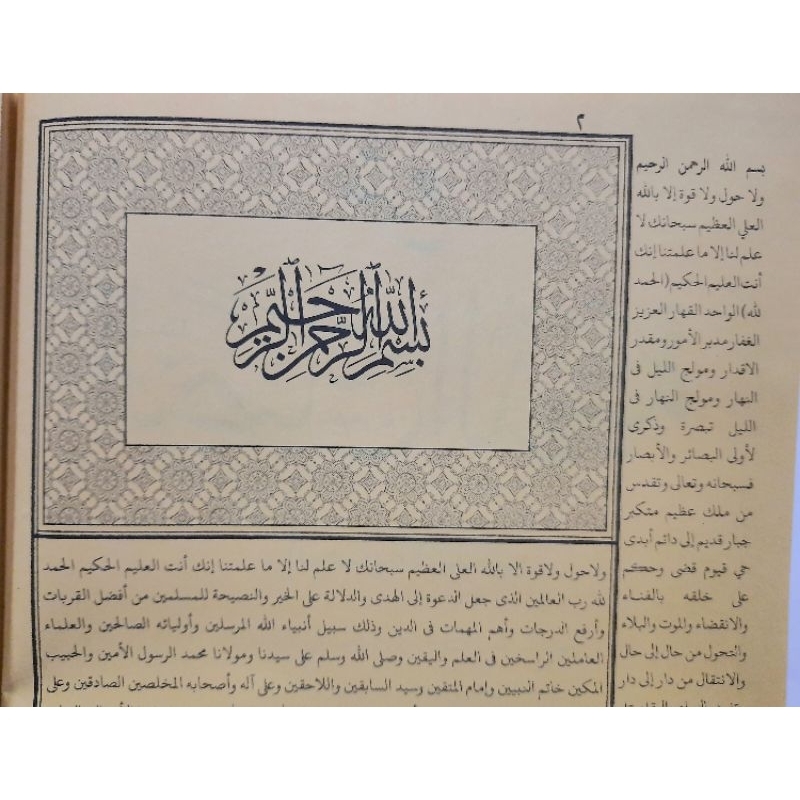 ٢
بسم الله الرحمن الرحيم
بسم الله الرحمن الرحيم
ولا حول ولا قوة إلا بالله
العلي العظيم سبحانك لا
علم لنا إلا ما علمتنا إنك
أنت العليم الحكيم (الحمد
لله) الواحد القهار العزيز
الغفار مدبر الأمور ومقدر
الاقدار ومولج الليل فى
النهار ومولج النهار فى
الليل تبصرة وذكرى
لأولى البصائر والأبصار
فسبحانه وتعالى وتقدس
من ملك عظيم متكبر
جبار قديم إلى دائم أبدى
حي قيوم قضى وحكم
على خلقه بالفناء
والانقضاء والموت والبلاء
والتحول من حال إلى حال
والانتقال من دار إلى دار
ولاحول ولاقوة الا بالله العلى العظيم سبحانك لا علم لنا إلا ما علمتنا إنك أنت العليم الحكيم الحمد
لله رب العالمين الذى جعل الدعوة إلى الهدى والدلالة على الخير والنصيحة للمسلمين من أفضل القربات
وأرفع الدرجات وأهم المهمات فى الدين وذلك سبيل أنبياء الله المرسلين وأوليائه الصالحين والعلماء
العاملين الراسخين فى العلم واليقين وصلى الله وسلم على سيدنا ومولانا محمد الرسول الأمين والحبيب
المكين خاتم النبيين وإمام المتقين وسيد السابقين واللاحقين وعلى آله وأصحابه المخلصين الصادقين وعلى